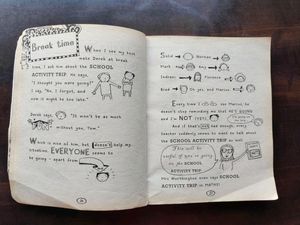 Break time
When I see my best
mate Derek at break
time, I tell him about the SCHOOL
ACTIVITY TRIP. He says,
"I thought you were going?"
I say, "No, I forgot, and
now it might be too late."
Derek says,
"It won't be as much
without you, Tom."
Which is nice of him, but doesn't help my
situation. EVERYONE seems to
be going - apart from
Solid
Norman
Mark
Amy
Indrani
Florence
Brad
Oh yes, and Marcus.
Every time I see Marcus, he
doesn't stop reminding me that HE'S GOING
and I'm NOT (YET).
And if that's not bad enough, every
teacher suddenly seems to want to talk about
the SCHOOL ACTIVITY TRIP as well.
This will be
useful if you're going
on the
SCHOOL
ACTIVITY TRIP
Mrs Worthington even says SCHOOL
ACTIVITY TRIP in MATHS!